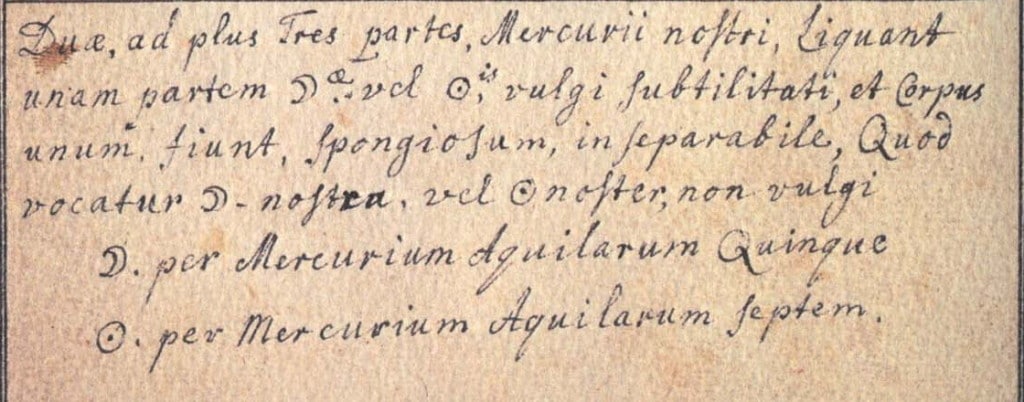 Duæ, ad plus Tres partes, Mercurii nostri, Liquant
unam partem ☽æ. vel ☉is. vulgi subtilitati, et Corpus
unum. fiunt, spongiosum, inseparabile, Quod
vocatur ☽. nostra. vel ☉ noster, non vulgi
☽. per Mercurium Aquilarum Quinque
☉. per Mercurium Aquilarum septem.